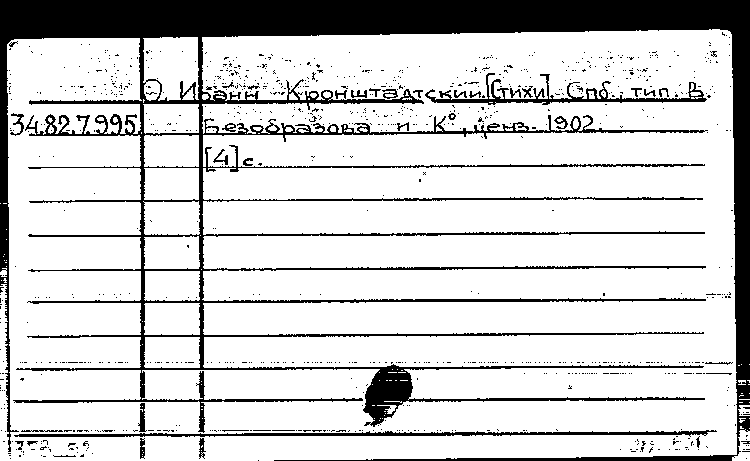 О. Иоанн Кронштадтский. [Стихи]. Спб., тип. В.
34.82.7.995 Безобразова и К°, ценз. 1902.
[4] с.